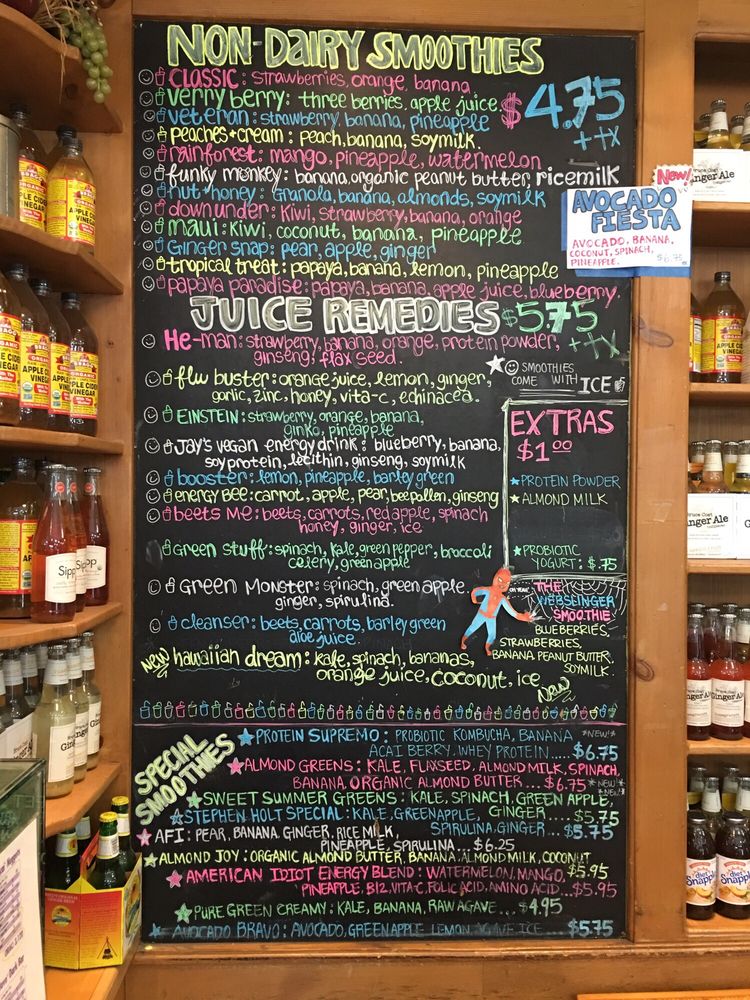 NON-DAIRY SMOOTHIES
CLASSIC: strawberries, orange, banana
verry berry: three berries, apple juice.
$4.75
++TX
veteran: strawberry, banana, pineapple
peaches+cream: peach, banana, soymilk.
rainforest: mango, pineapple, watermelon
funky monkey: banana, organic peanut butter, ricemilk
nut+honey: Granola, banana, almonds, soymilk
down under: Kiwi, strawberry, banana, orange
maui: Kiwi, coconut, banana, pineapple
Ginger snap: pear, apple, ginger
tropical treat: papaya, banana, lemon, pineapple
papaya paradise: papaya, banana, apple juice, blueberry.
New!
AVOCADO
FIESTA
AVOCADO, BANANA,
COCONUT, SPINACH,
PINEAPPLE. $6.75
JUICE REMEDIES $5.75
++TX
He-man: strawberry, banana, orange, protein powder,
ginseng, flax seed.
flu buster: orange juice, lemon, ginger,
garlic, zinc, honey, vita-c, echinacea.
EINSTEIN: strawberry, orange, banana,
ginko, pineapple
Jay's vegan energy drink: blueberry, banana,
soy protein, lecithin, ginseng, soymilk
booster: lemon, pineapple, barley green
energy Bee: carrot, apple, pear, bee pollen, ginseng
beets me: beets, carrots, red apple, spinach
honey, ginger, ice
Green stuff: spinach, kale, green pepper, broccoli
celery, green apple
Green Monster: spinach, green apple
ginger, spirulina.
cleanser: beets, carrots, barley green
aloe juice.
New hawaiian dream: kale, spinach, bananas,
orange juice, coconut, ice
New
SMOOTHIES
COME WITH ICE
EXTRAS
$1.00
PROTEIN POWDER
ALMOND MILK
PROBIOTIC
YOGURT: $.75
THE
WEBSLINGER
SMOOTHIE
BLUEBERRIES,
STRAWBERRIES,
BANANA, PEANUT BUTTER,
SOYMILK.
SPECIAL
SMOOTHIES
PROTEIN SUPREMO: PROBIOTIC KOMBUCHA, BANANA *NEW!*
ACAI BERRY, WHEY PROTEIN.....$6.75
ALMOND GREENS: KALE, FLAXSEED, ALMOND MILK, SPINACH,
BANANA, ORGANIC ALMOND BUTTER...$6.75 *NEW*
SWEET SUMMER GREENS: KALE, SPINACH, GREEN APPLE,
GINGER....$5.75
STEPHEN HOLT SPECIAL: KALE, GREEN APPLE,
SPIRULINA, GINGER...$5.75
AFI: PEAR, BANANA, GINGER, RICE MILK,
PINEAPPLE, SPIRULINA...$6.25
ALMOND JOY: ORGANIC ALMOND BUTTER, BANANA, ALMOND MILK, COCONUT
$5.95
AMERICAN IDIOT ENERGY BLEND: WATERMELON, MANGO,
PINEAPPLE, B12, VITA-C, FOLIC ACID, AMINO ACID...$5.95
PURE GREEN CREAMY: KALE, BANANA, RAW AGAVE...$4.95
AVOCADO BRAVO: AVOCADO, GREEN APPLE, LEMON, AGAVE, ICE....$5.75
BRAGG
ORGANIC
APPLE CIDER
VINEGAR
Sipp
Ginger Ale
diet
Snapple